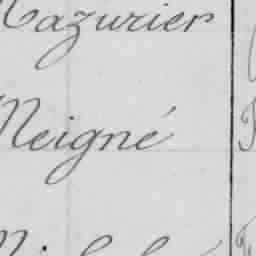 Mazurier
Meigné